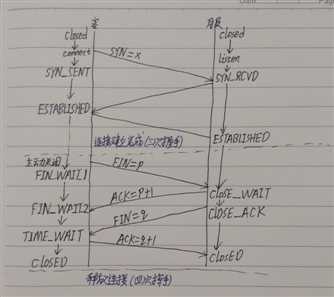 Date
Page
客
服
closed
closed
connect
listen
SYN=x
SYN_SENT
SYN_RCVD
ESTABLISHED
连接建立完成(三次握手)
ESTABLISHED
主动关闭
FIN=p
FIN_WAIT1
ACK=P+1
CLOSE_WAIT
FIN_WAIT2
FIN=q
CLOSE_ACK
TIME_WAIT
ACK=q+1
CLOSED
CLOSED
释放连接(四次挥手)